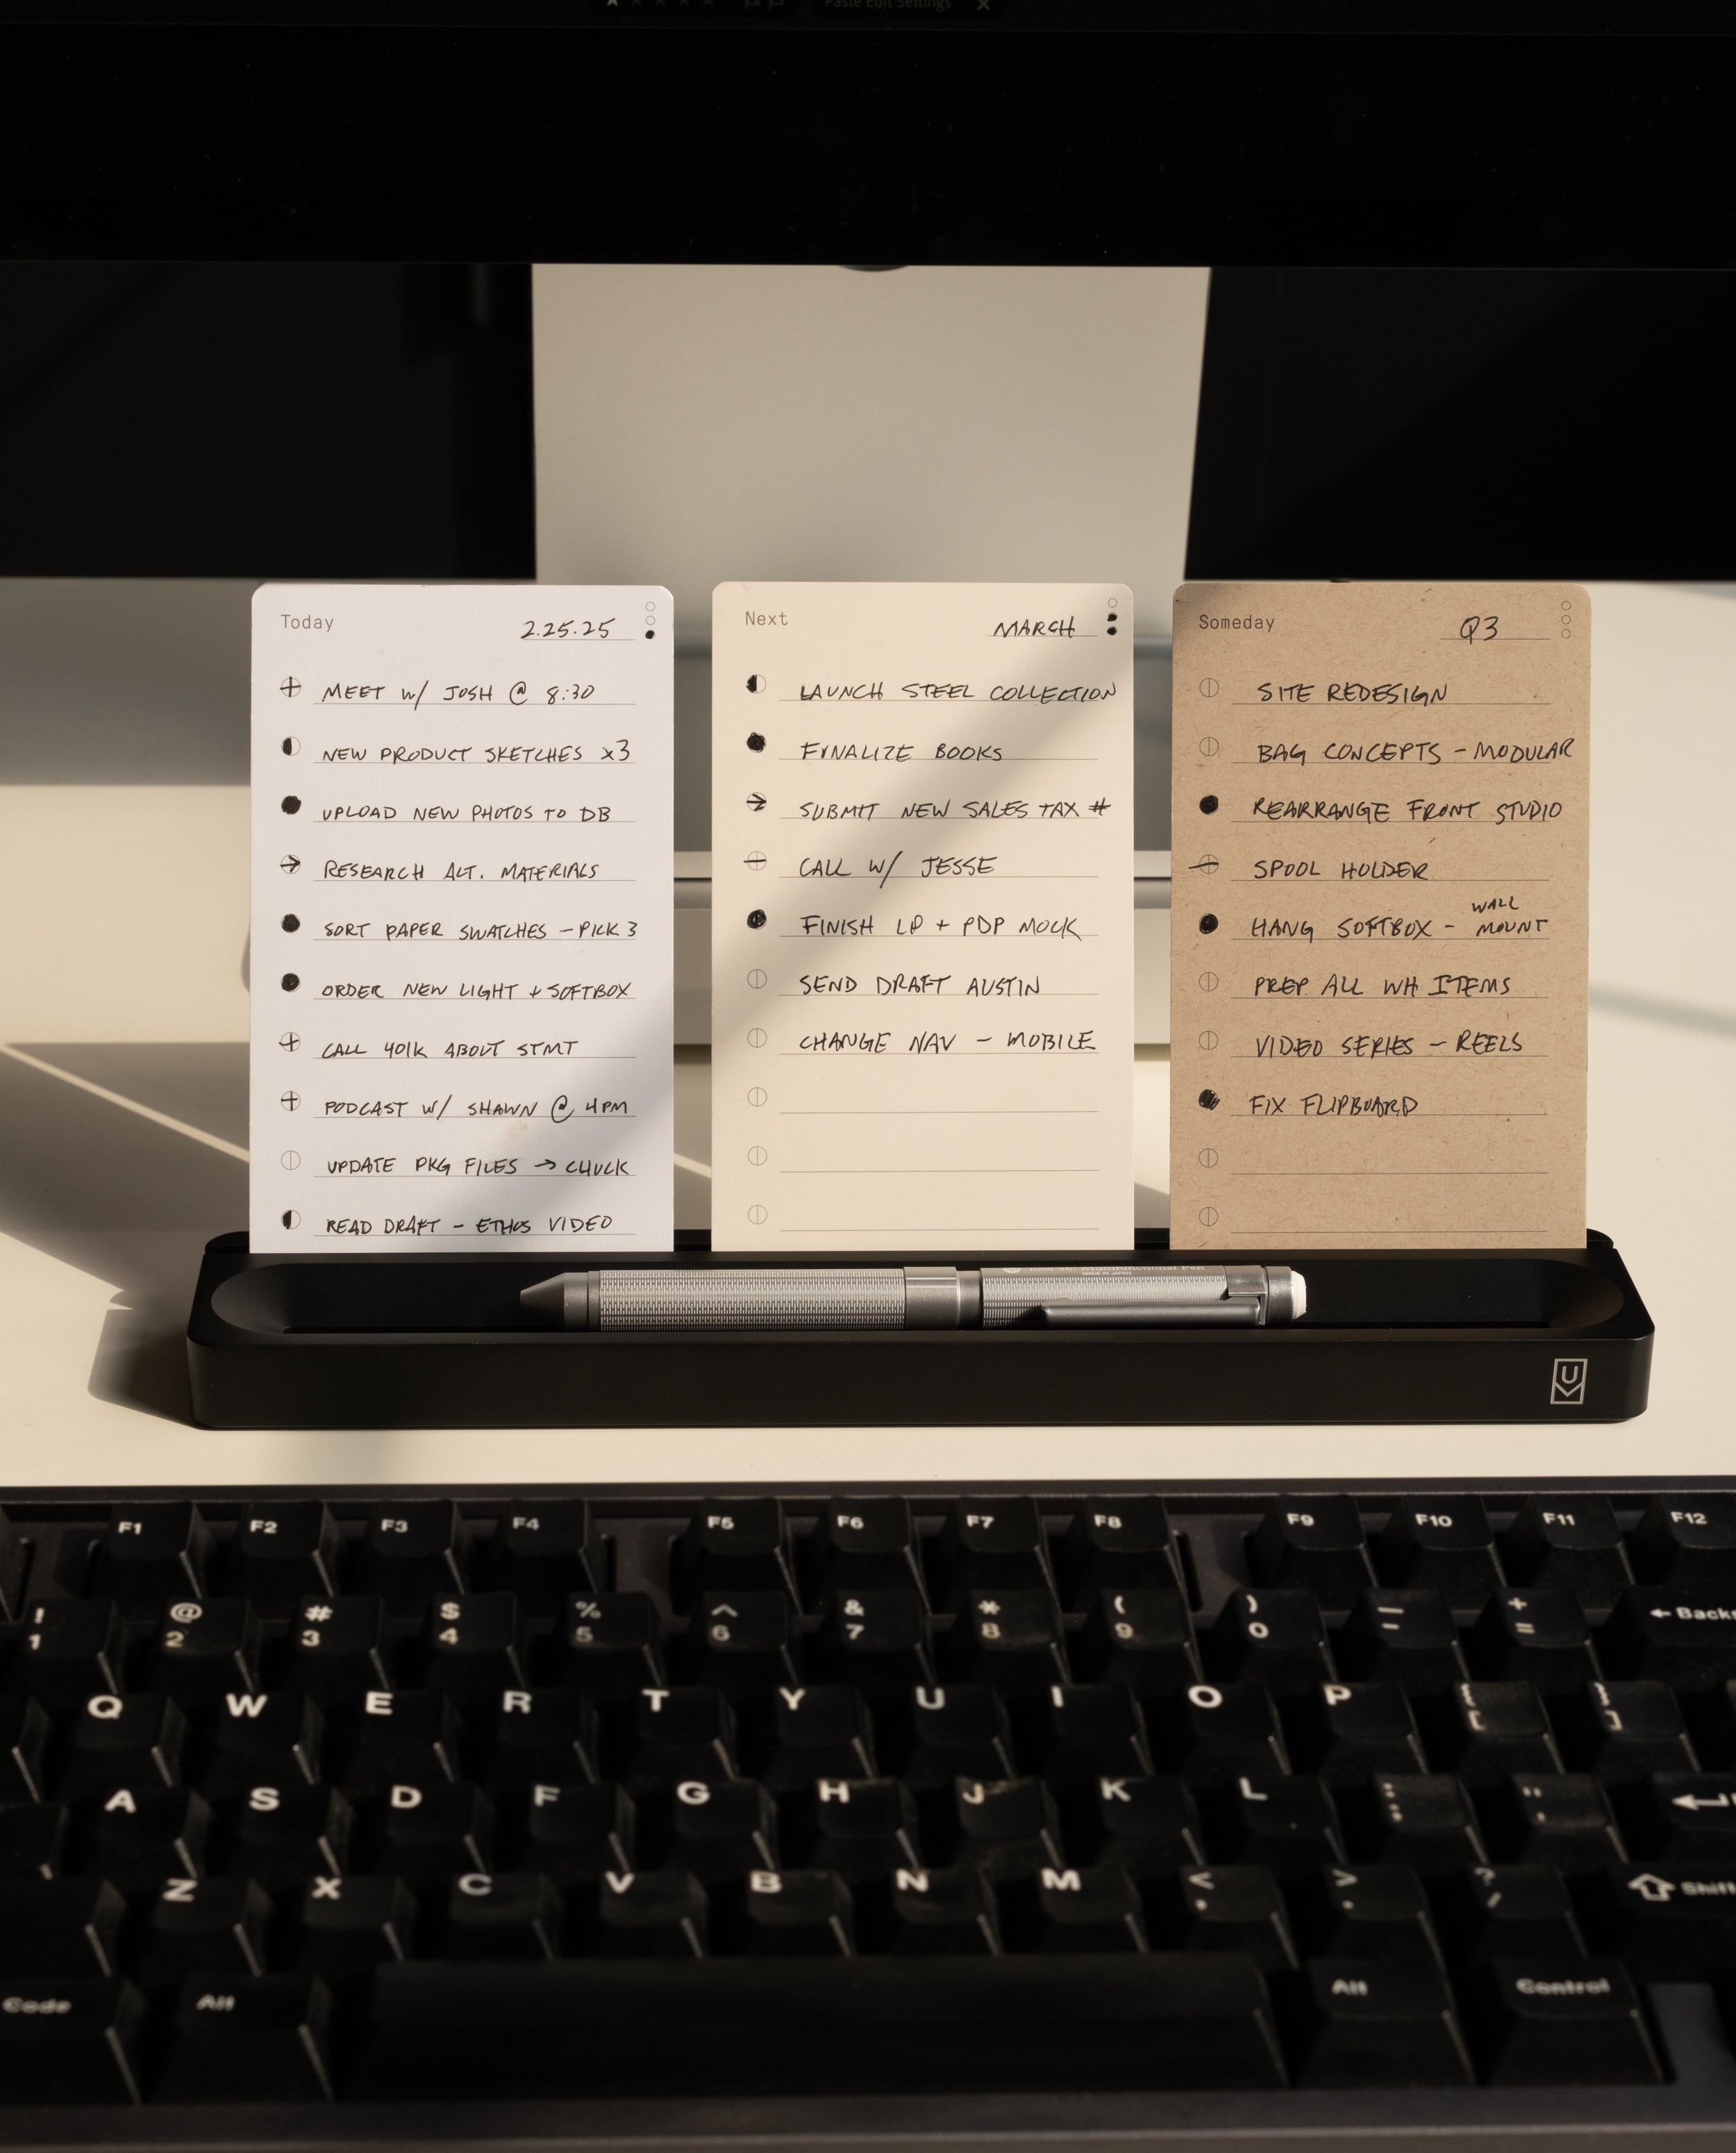 Paste Edit Settings
Today 2.25.25
MEET W/ JOSH @ 8:30
NEW PRODUCT SKETCHES x3
UPLOAD NEW PHOTOS TO DB
RESEARCH ALT. MATERIALS
SORT PAPER SWATCHES - PICK 3
ORDER NEW LIGHT + SOFTBOX
CALL 401K ABOUT STMT
PODCAST W/ SHAWN @ 4PM
UPDATE PKG FILES → CHUCK
READ DRAFT - ETHOS VIDEO
Next MARCH
LAUNCH STEEL COLLECTION
FINALIZE BOOKS
SUBMIT NEW SALES TAX #
CALL W/ JESSE
FINISH LP + PDP MOCK
SEND DRAFT AUSTIN
CHANGE NAV - MOBILE
Someday Q3
SITE REDESIGN
BAG CONCEPTS - MODULAR
REARRANGE FRONT STUDIO
SPOOL HOLDER
HANG SOFTBOX - WALL MOUNT
PREP ALL WH ITEMS
VIDEO SERIES - REELS
FIX FLIPBOARD
Multifunctional Pen
MADE IN JAPAN
U
F1 F2 F3 F4 F5 F6 F7 F8 F9 F10 F11 F12
! @ # $ % ^ & * ( ) _ +
1 2 3 4 5 6 7 8 9 0 - = ← Backs
Q W E R T Y U I O P { [ } ]
A S D F G H J K L : ; " '
Z X C V B N M < , > . ? / Shift
Code Alt Alt Control